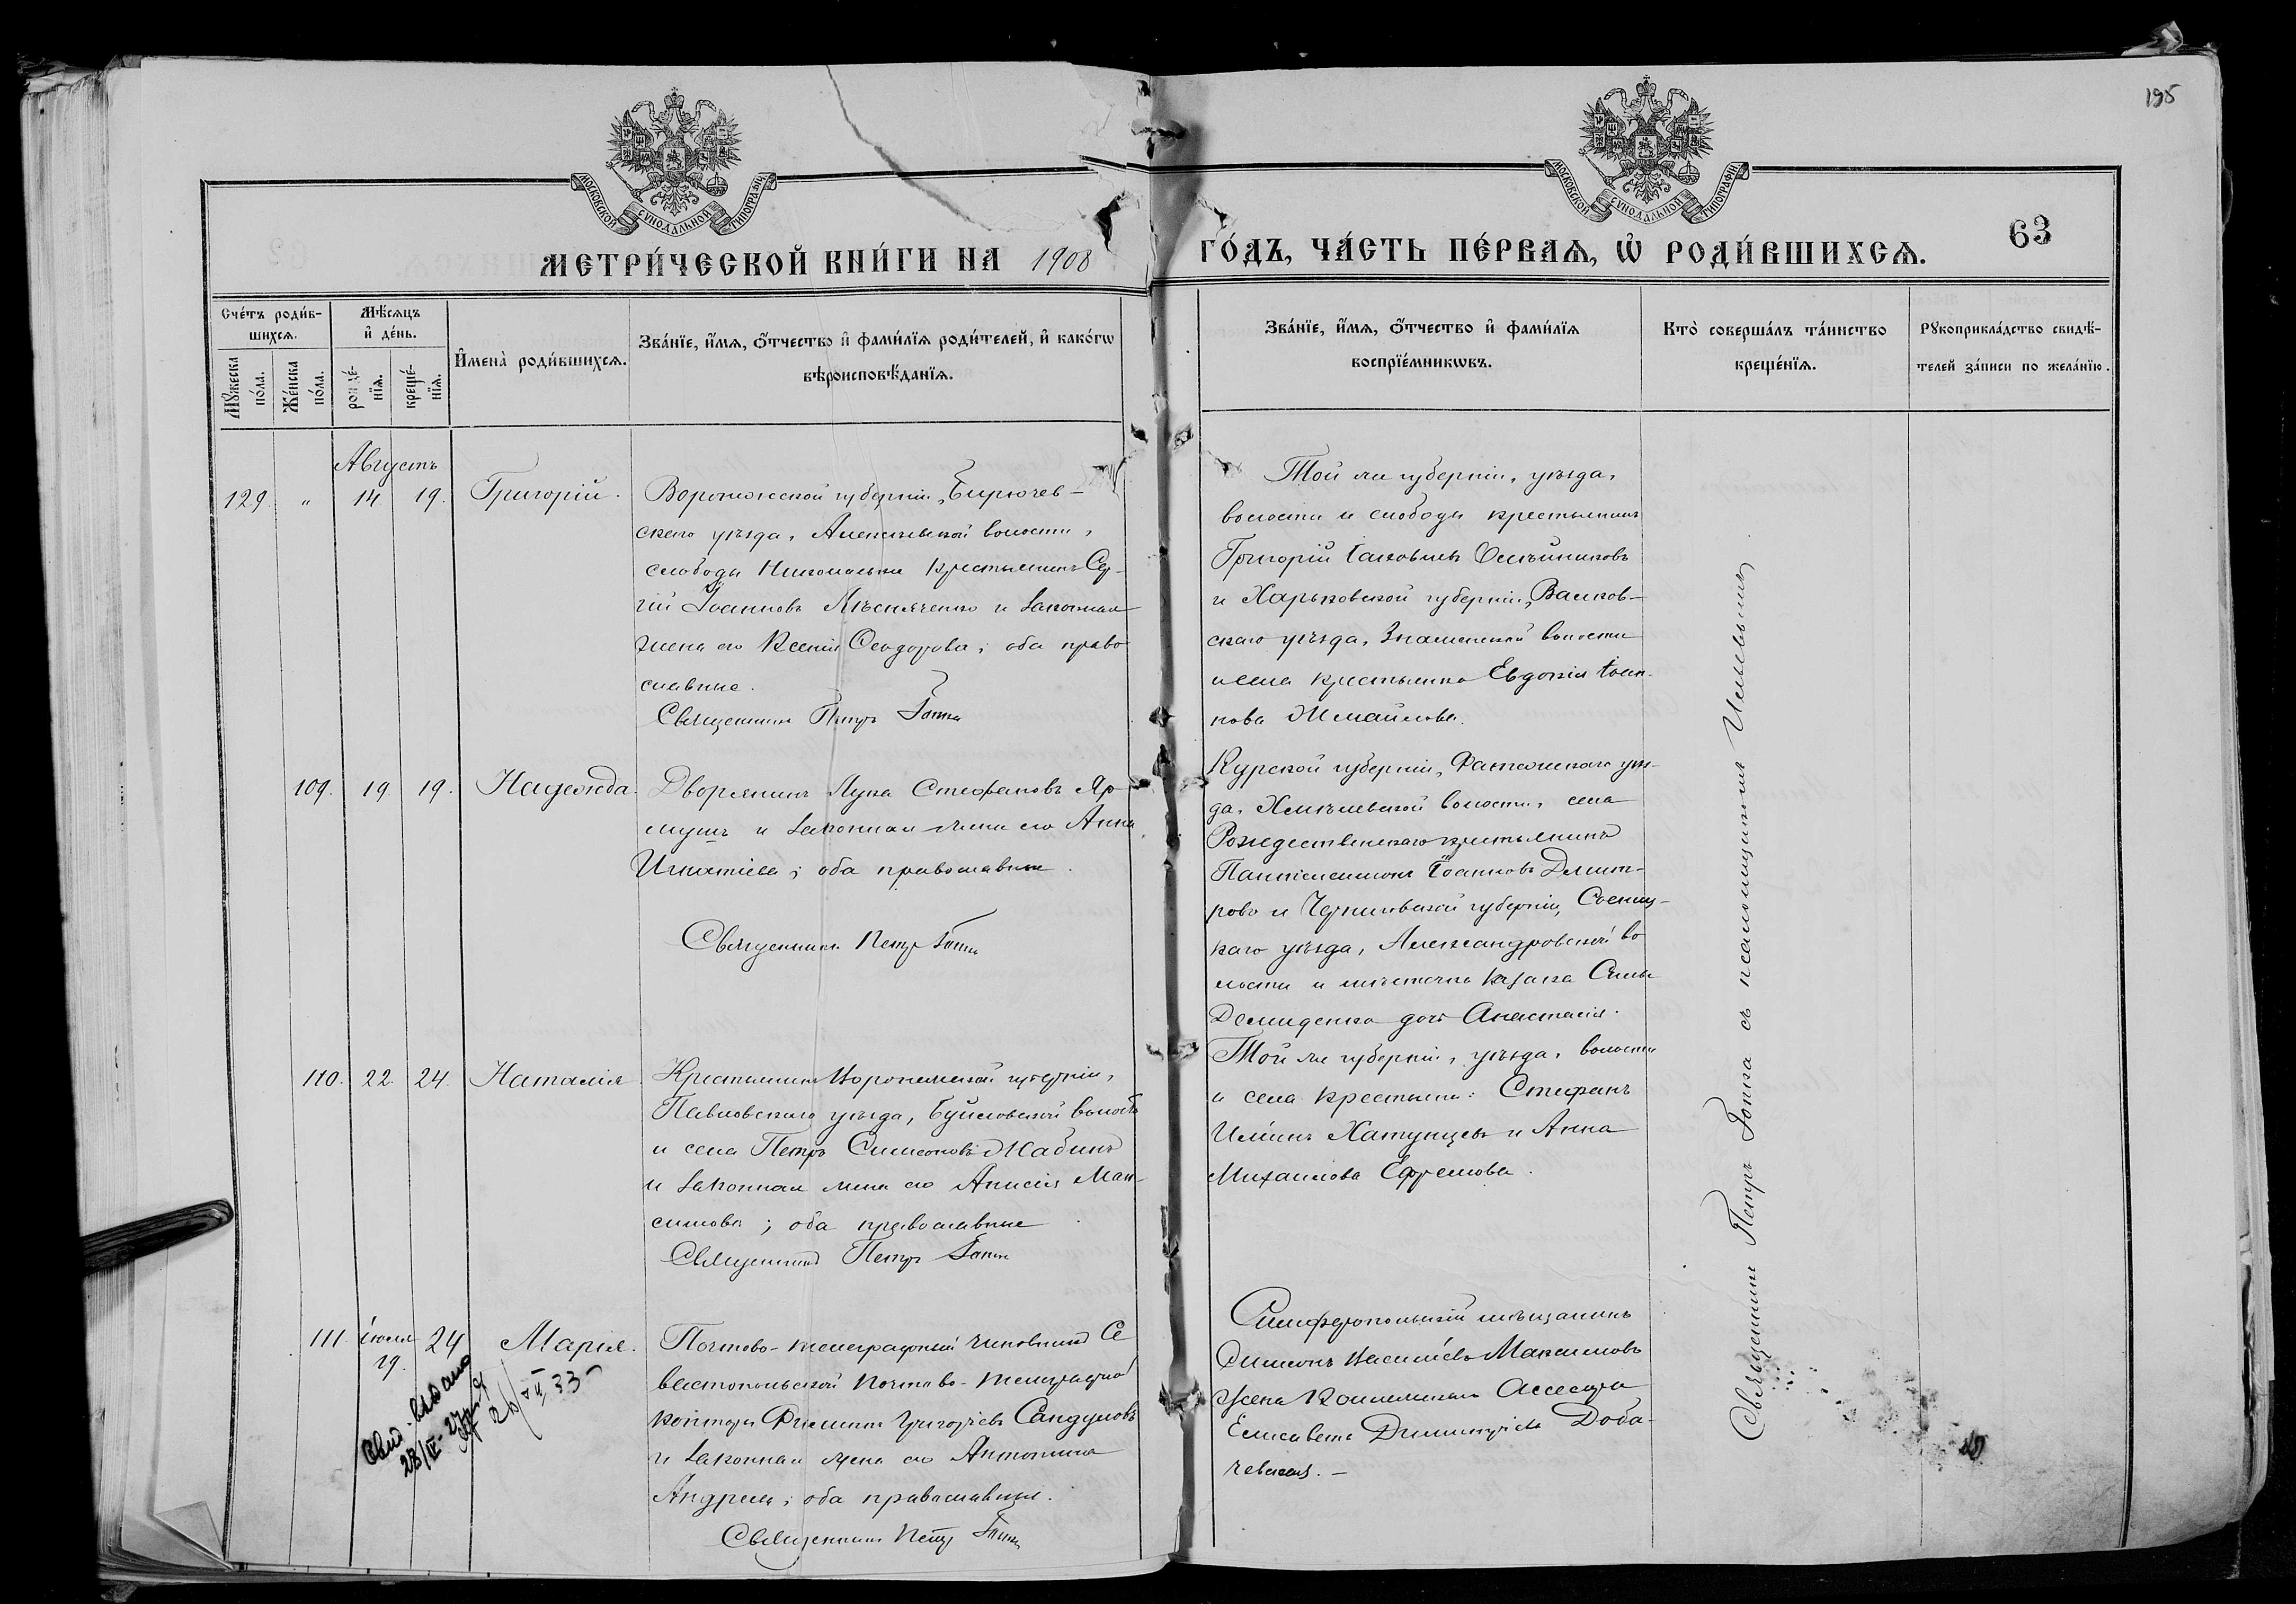 195
МОСКОВСКОЙ СѴНОДАЛЬНОЙ ТИПОГРАФІИ
МОСКОВСКОЙ СѴНОДАЛЬНОЙ ТИПОГРАФІИ
63
МЕТРИ́ЧЕСКОЙ КНИ́ГИ НА 1908 ГО́ДЪ, ЧА́СТЬ ПЕ́РВАѦ, Ѽ РОДИ́ВШИХСѦ.
Сче́тъ роди́в-
шихсѧ.
Мꙋ́жеска по́ла.
Же́нска по́ла.
Мѣ́сѧцъ
и҆ де́нь.
рожде́-
нїѧ.
креще́-
нїѧ.
И҆мена̀ роди́вшихсѧ.
Зва́нїе, и҆́мѧ, ѻ҆́тчество и҆ фами́лїѧ роди́телей, и҆ како́гѡ
вѣроисповѣ́данїѧ.
Зва́нїе, и҆́мѧ, ѻ҆́тчество и҆ фами́лїѧ
воспрїе́мникѡвъ.
Кто̀ соверша́лъ та́инство
креще́нїѧ.
Рꙋкоприкла́дство свидѣ́-
телей за́писи по жела́нїю.
Августъ
129. " 14. 19. Григорій.
Воронежской губерніи, Бирючев-
скаго уѣзда, Алексѣевской волости,
слободы Николаевки крестьянинъ Сер-
гій Іоанновъ Лѣсниченко и законная
жена его Ксенія Ѳеодорова; оба право
славные.
Священникъ Петръ Гопка
Той же губерніи, уѣзда,
волости и слободы крестьянинъ
Григорій Іаковлевъ Олейниковъ
и Харьковской губерніи, Валков-
скаго уѣзда, Знаменской волости
и села крестьянка Евдокія Іоан-
нова Измаилова.
109. 19. 19. Надежда.
Дворянинъ Лука Стефановъ Яр-
мушъ и законная жена его Анна
Игнатіева; оба православные.
Священникъ Петръ Гопка
Курской губерніи, Фатежскаго уѣз-
да, Хмѣлевской волости, села
Рождественскаго крестьянинъ
Пантелеимонъ Іоанновъ Дмит-
ровъ и Черниговской губерніи, Сосниц-
каго уѣзда, Александровской во
лости и мѣстечка казака Силы
Демиденка дочь Анастасія.
110. 22. 24. Наталія
Крестьянинъ Воронежской губерніи,
Павловскаго уѣзда, Буйловской волости
и села Петръ Симеоновъ Жабинъ
и законная жена его Анисія Мак-
симова; оба православные
Священникъ Петръ Гопка
Той же губерніи, уѣзда, волости
и села крестьяне: Стефанъ
Иліинъ Хатунцевъ и Анна
Михаилова Ефремова.
111. Іюля 29. 24 Марія.
Почтово-телеграфный чиновникъ Се
вастопольской почтово-телеграфной
конторы Филиппъ Григоріевъ Сандуловъ
и законная жена его Антонина
Андреева; оба православные.
Священникъ Петръ Гопка
Симферопольскій мѣщанинъ
Симеонъ Василіевъ Максимовъ
жена Коллежскаго Ассесора
Елисавета Димитріева Доба-
чевская. —
Свид. выдано
28/IV-27
26/VI 33
Священникъ Петръ Гопка съ псаломщикомъ